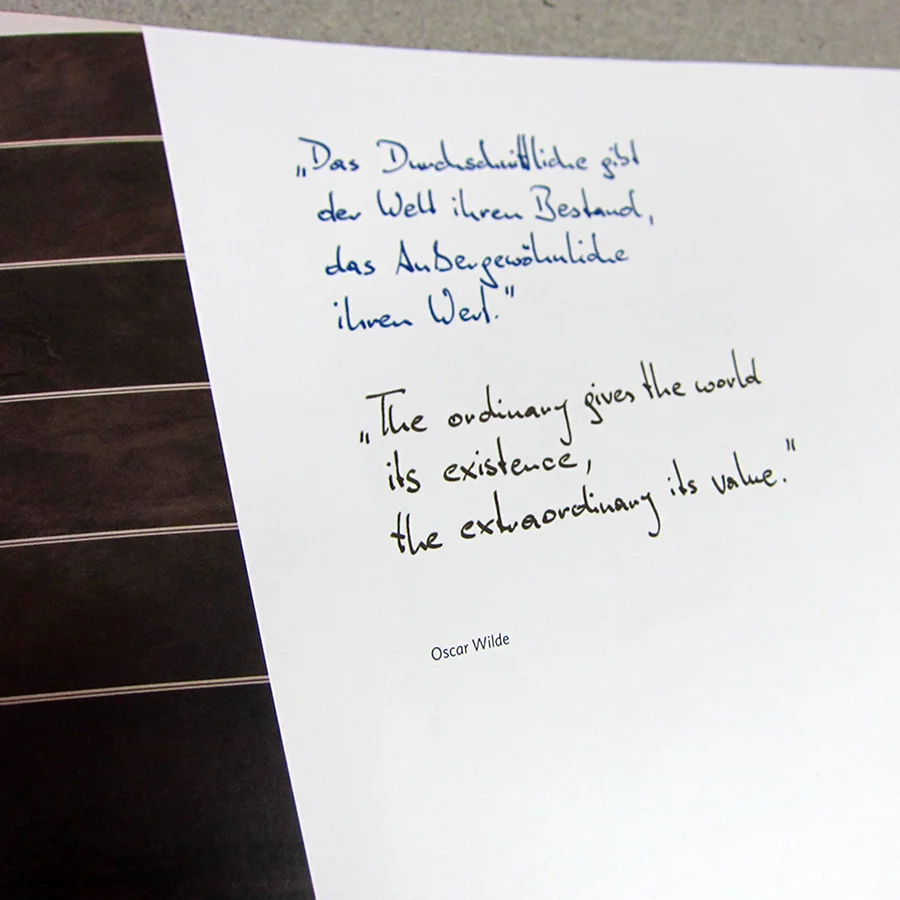 „Das Durchschnittliche gibt
der Welt ihren Bestand,
das Außergewöhnliche
ihren Wert."
„The ordinary gives the world
its existence,
the extraordinary its value."
Oscar Wilde